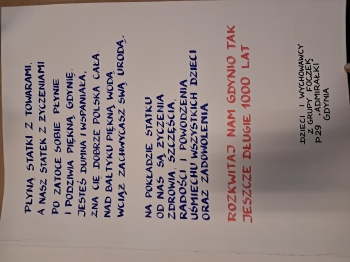 PŁYNĄ STATKI Z TOWARAMI,
A NASZ STATEK Z ŻYCZENIAMI
PO ZATOCE SOBIE PŁYNIE
I PODZIWIA PIĘKNĄ GDYNIĘ.
JESTEŚ DUMNA I WSPANIAŁA,
ZNA CIĘ DOBRZE POLSKA CAŁA
NAD BAŁTYKU PIĘKNĄ WODĄ
WCIĄŻ ZACHWYCASZ SWĄ URODĄ.
NA POKŁADZIE STATKU
OD NAS SĄ ŻYCZENIA
ZDROWIA, SZCZĘŚCIA,
RADOŚCI, POWODZENIA
UŚMIECHU WSZYSTKICH DZIECI
ORAZ ZADOWOLENIA
ROZKWITAJ NAM GDYNIO TAK
JESZCZE DŁUGIE 1000 LAT
DZIECI I WYCHOWAWCY
Z GRUPY FOCZEK
P29 „ADMIRAŁKI”
GDYNIA